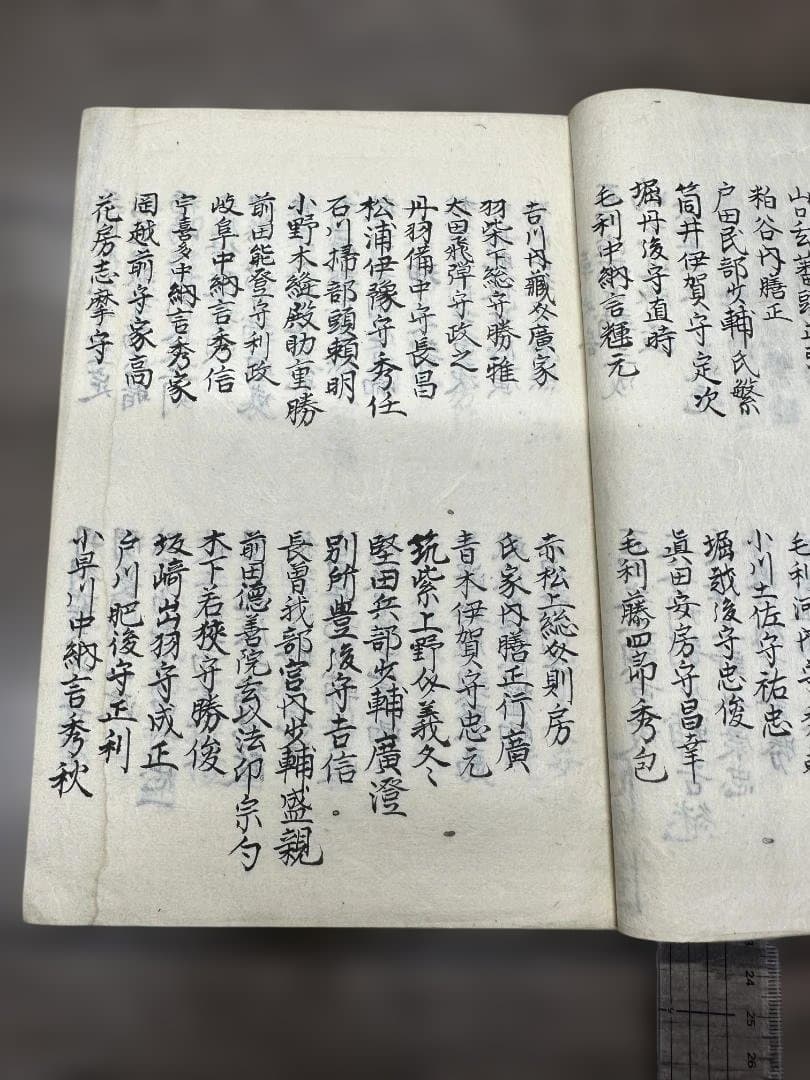 粕谷内膳正
戸田民部少輔氏繁
筒井伊賀守定次
堀丹後守直時
毛利中納言輝元
小川土佐守祐忠
堀越後守忠俊
眞田安房守昌幸
毛利藤四郎秀包
吉川内藏介廣家
羽柴下総守勝雅
太田飛弾守政之
丹羽備中守長昌
松浦伊豫守秀任
石川掃部頭頼明
小野木縫殿助重勝
前田能登守利政
岐阜中納言秀信
宇喜多中納言秀家
岡越前守家高
花房志摩守
赤松上総介則房
氏家内膳正行廣
青木伊賀守忠元
筑紫上野介義冬
堅田兵部少輔廣澄
別所豊後守吉信
長曽我部宮内少輔盛親
前田德善院玄以法印宗勺
木下若狹守勝俊
坂﨑出羽守成正
戸川肥後守正利
小早川中納言秀秋
24
25
26